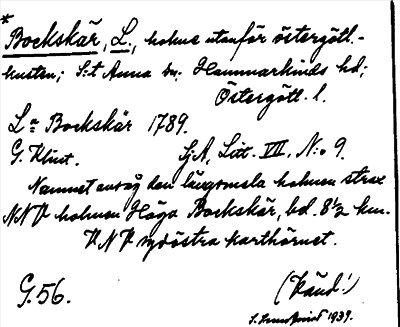 *
Bockskär, L., holme utanför östergötl.-
kusten; S:t Anna sn; Hammarkinds hd;
Östergötl. l.
La Bockskär 1789.
G. Klint. SjA, Litt. VII, N:o 9.
Namnet avsåg den långsmala holmen strax
NNV holmen Höga Bockskär, bel. 8½ km.
VNV sydöstra karthörnet.
G. 56. (Känd!)
1939.